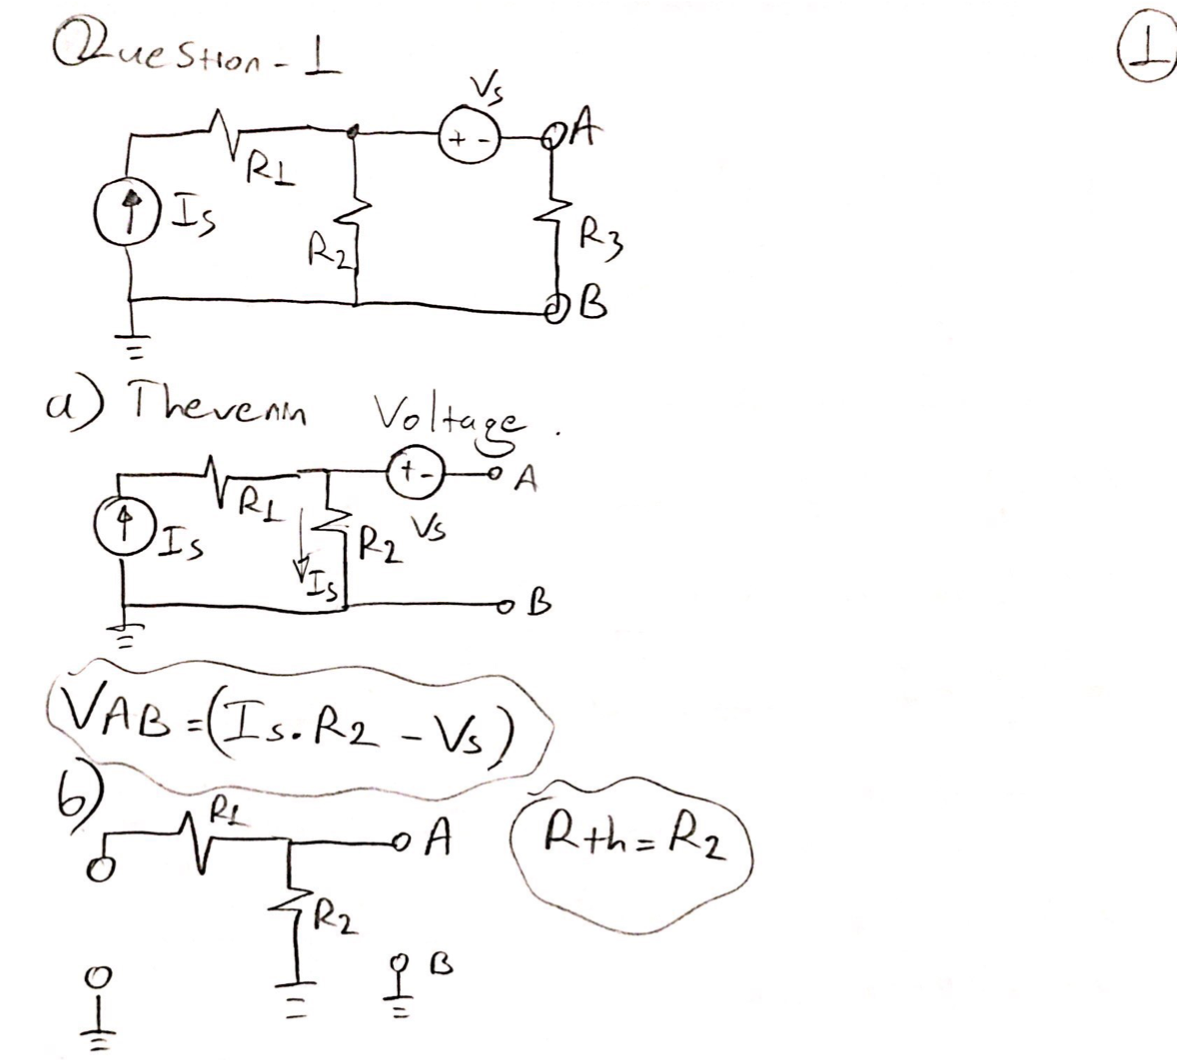 Question-1
1
Vs
+ -
A
R1
Is
R2
R3
B
a) Thevenin Voltage.
+ -
A
R1
Vs
Is
R2
Is
B
VAB=(Is.R2-Vs)
b)
R1
A
Rth=R2
R2
B